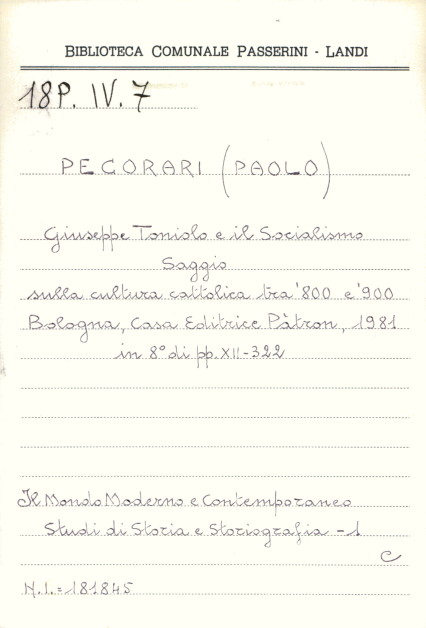 BIBLIOTECA COMUNALE PASSERINI - LANDI
18P. IV. 7
PECORARI (PAOLO)
Giuseppe Toniolo e il Socialismo
Saggio
sulla cultura cattolica tra '800 e '900
Bologna, Casa Editrice Pàtron, 1981
in 8° di pp. XII-322
Il Mondo Moderno e Contemporaneo
Studi di Storia e Storiografia - 1
C
N.I.= 181845